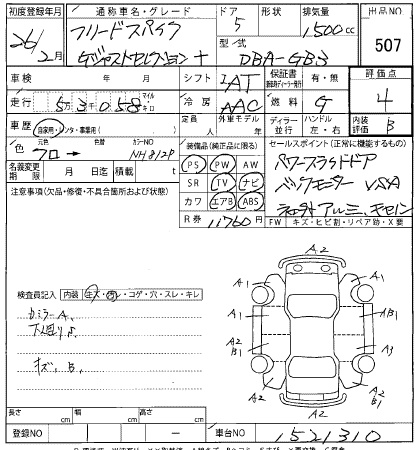 初度登録年月 通称車名・グレード ドア 形状 排気量 出品NO
26/2月 フリードスパイク 5 1500cc 507
Gジャストセレクション+ 型式 DBA-GB3
車検 年 月 シフト IAT 保証書 有・無 評価点
走行 53058 マイル キロ 冷房 AAC 燃料 G 4
車歴 自家用・レンタ・事業用( ) 定員 人 外車モデル 年 ディーラー 並行 ハンドル 左・右 内装評価 B
色 元色 クロ → 色替 カラーNO NH812P 装備品(純正品に限る) セールスポイント(正常に機能するもの)
名義変更期限 月 日迄 積載 t PS PW AW パワースライドドア
注意事項(欠品・修復・不具合箇所および状態) SR TV ナビ バックモニター VSA
カワ エアB ABS 社外アルミ、キセノン
R券 11760円 FW キズ・ヒビ割・リペア跡・X要
A2
検査員記入 内装 キズ・コゲ・穴・スレ・キレ
A1 A2 A1
ミラーA、
下廻りS
A1 AB1
キズ、B、
A2 B1 A3
A2 A2 A2 B1
長さ cm 幅 cm 高さ cm
登録NO ー 車台NO 1521310